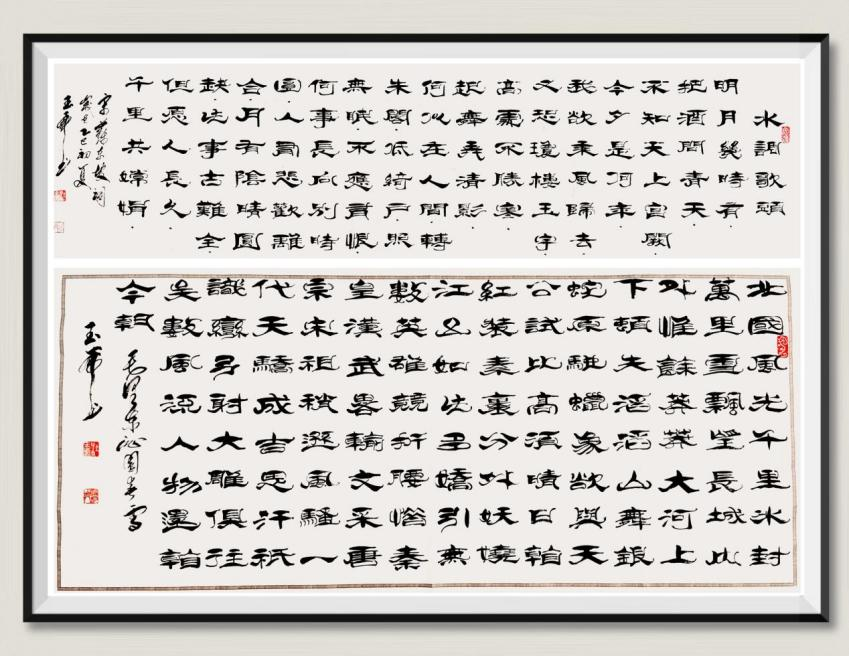 水調歌頭
明月幾時有
把酒問青天
不知天上宮闕
今夕是何年
我欲乘風歸去
又恐瓊樓玉宇
高處不勝寒
起舞弄清影
何似在人間轉
朱閣低綺戶照
無眠不應有恨
何事長向別時
圓人有悲歡離
合月有陰晴圓
缺此事古難全
但願人長久
千里共嬋娟
宋蘇東坡詞
歲在乙巳初夏
北國風光千里冰封
萬里雪飄望長城內
外惟餘莽莽大河上
下頓失滔滔山舞銀
蛇原馳蠟象欲與天
公試比高須晴日看
紅裝素裹分外妖嬈
江山如此多嬌引無
數英雄競折腰惜秦
皇漢武畧輸文采唐
宗宋祖稍遜風騷一
代天驕成吉思汗祇
識彎弓射大雕俱往
矣數風流人物還看
今朝
毛澤東沁園春雪